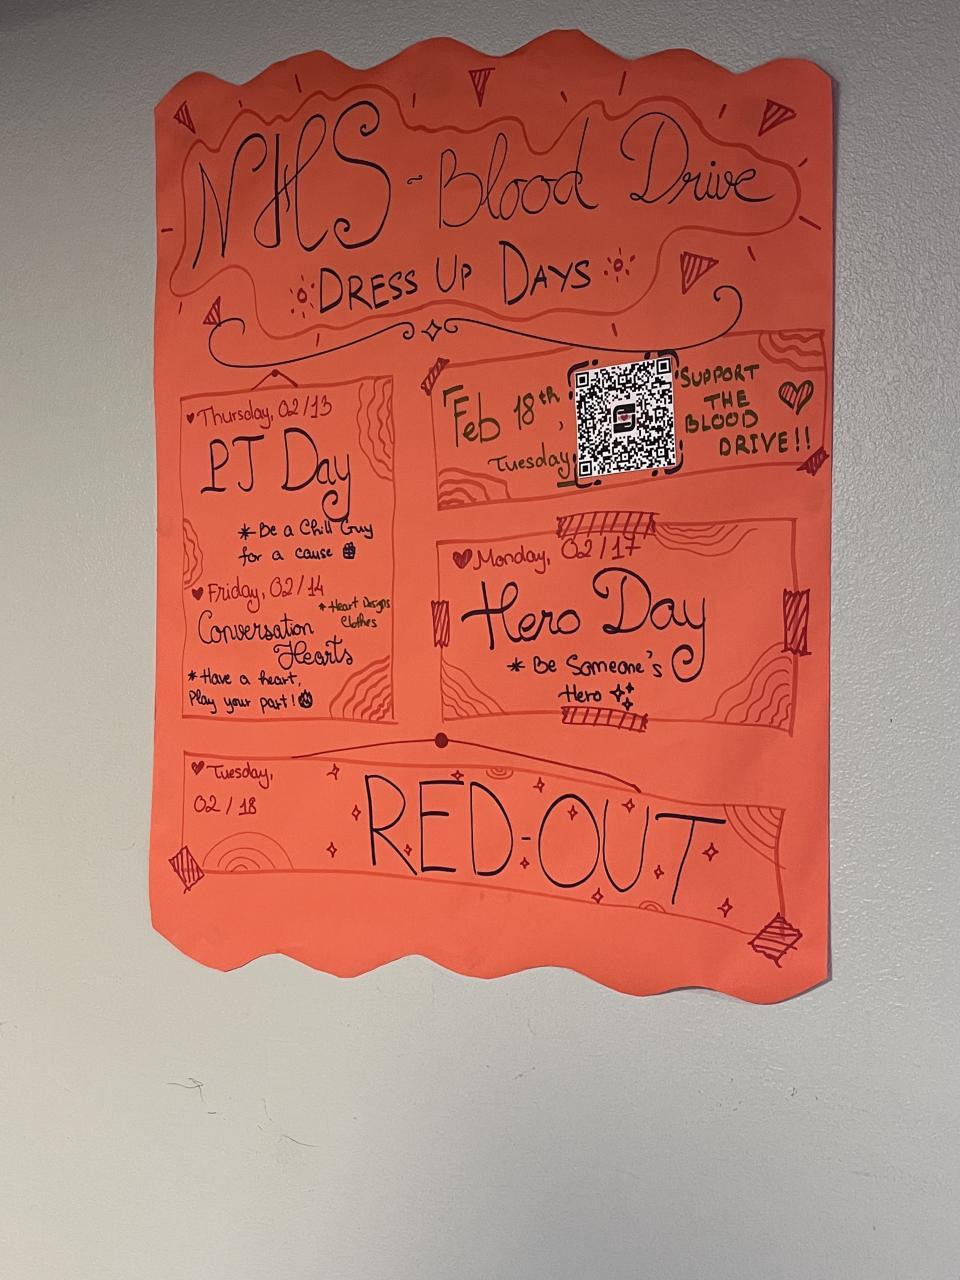 NHS - Blood Drive
DRESS UP DAYS
Thursday, 02/13
PJ Day
* Be a Chill Guy
for a cause
Friday, 02/14
* Heart Designs
Clothes
Conversation
Hearts
* Have a heart,
Play your part!
Feb 18th,
Tuesday
SUPPORT
THE
BLOOD
DRIVE!!
Monday, 02/17
Hero Day
* Be Someone's
Hero
Tuesday,
02/18
RED-OUT